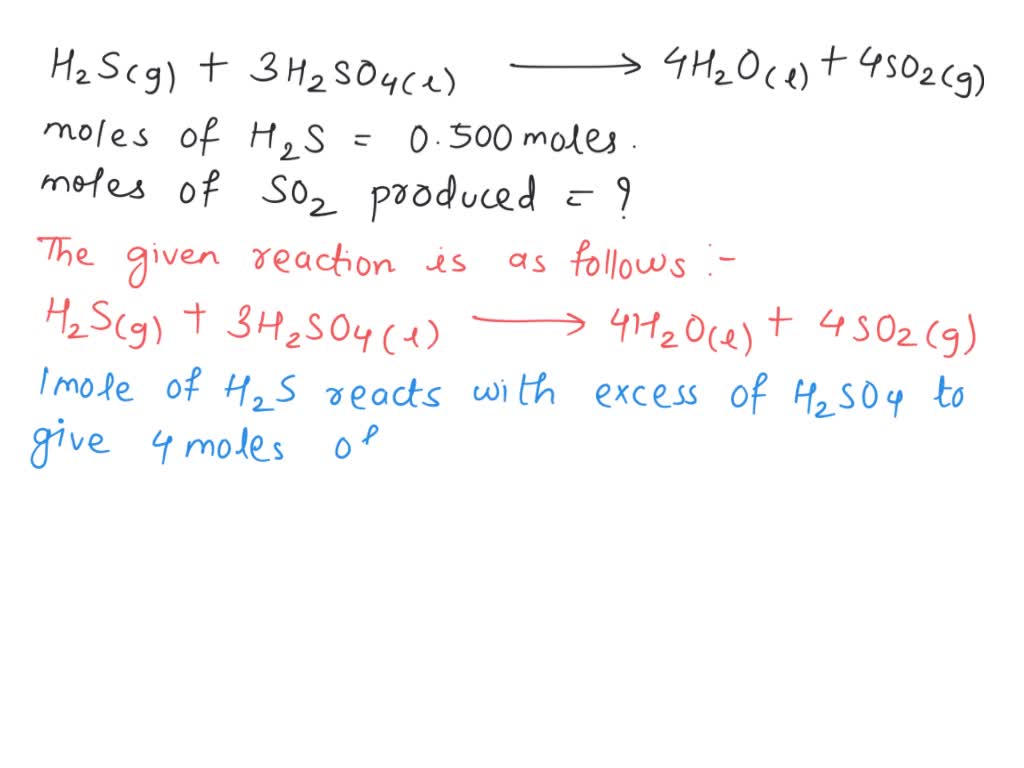 H₂S(g) + 3H₂SO₄(l) ⟶ 4H₂O(l) + 4SO₂(g)
moles of H₂S = 0.500 moles.
moles of SO₂ produced = ?
The given reaction is as follows :-
H₂S(g) + 3H₂SO₄(l) ⟶ 4H₂O(l) + 4SO₂(g)
1 mole of H₂S reacts with excess of H₂SO₄ to
give 4 moles of